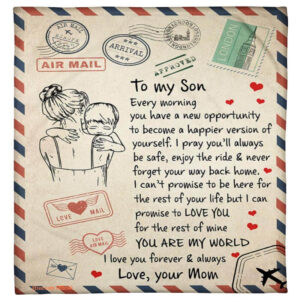 AIR MAIL
ARRIVAL
APPROVED
LONDON
AIR MAIL
To my Son
Every morning
you have a new opportunity
to become a happier version of
yourself. I pray you'll always
be safe, enjoy the ride & never
forget your way back home.
I can't promise to be here for
the rest of your life but I can
promise to LOVE YOU
for the rest of mine
YOU ARE MY WORLD
I love you forever & always
Love, your Mom
LOVE MAIL
LOVE
AIR MAIL